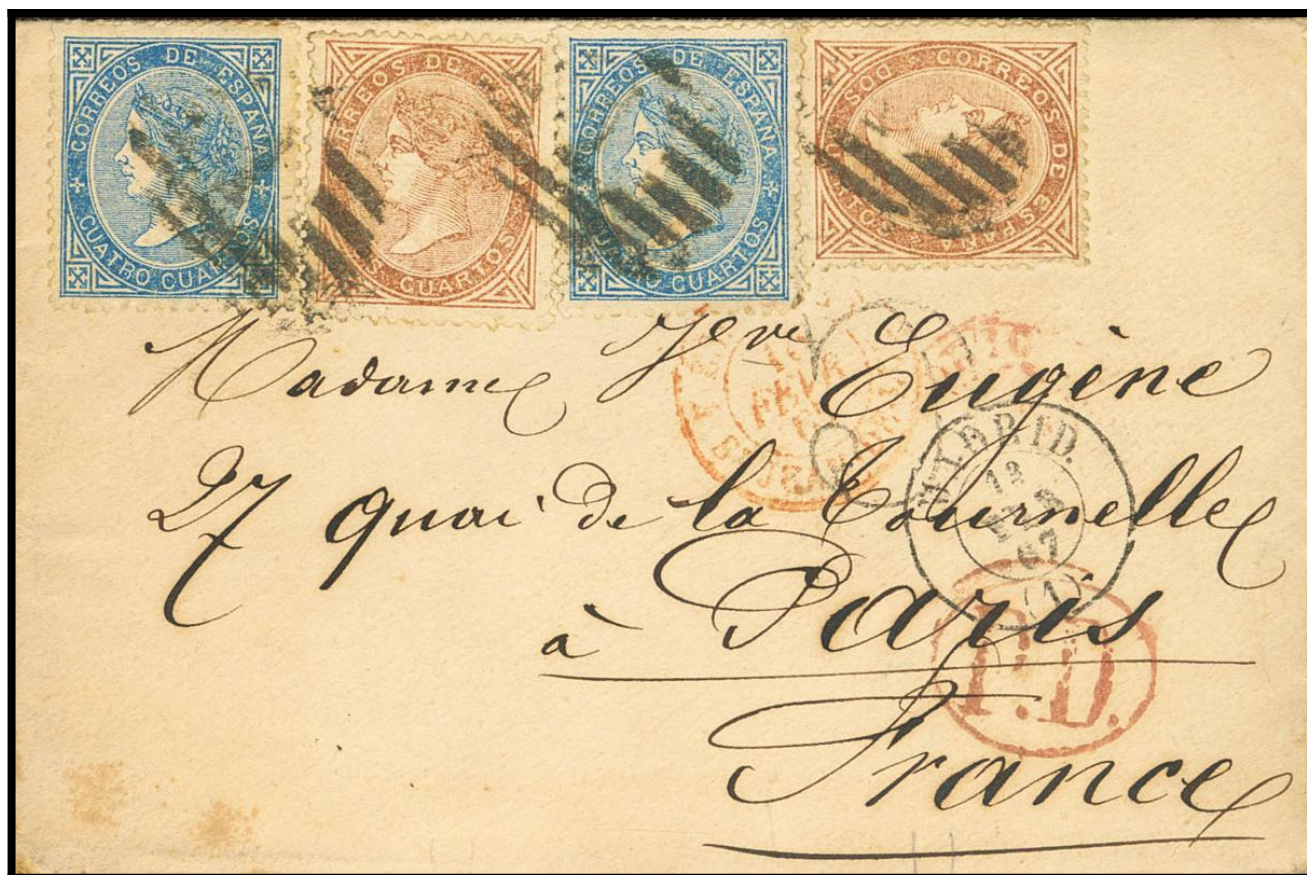 CORREOS DE ESPAÑA
CUATRO CUARTOS
CORREOS DE
CUARTOS
CORREOS DE ESPAÑA
CUARTOS
CORREOS DE ESPAÑA
DOS
Madame Jve Eugène
27 quai de la Tournelle
à Paris
France
MADRID.
12
67
(1)
P.D.